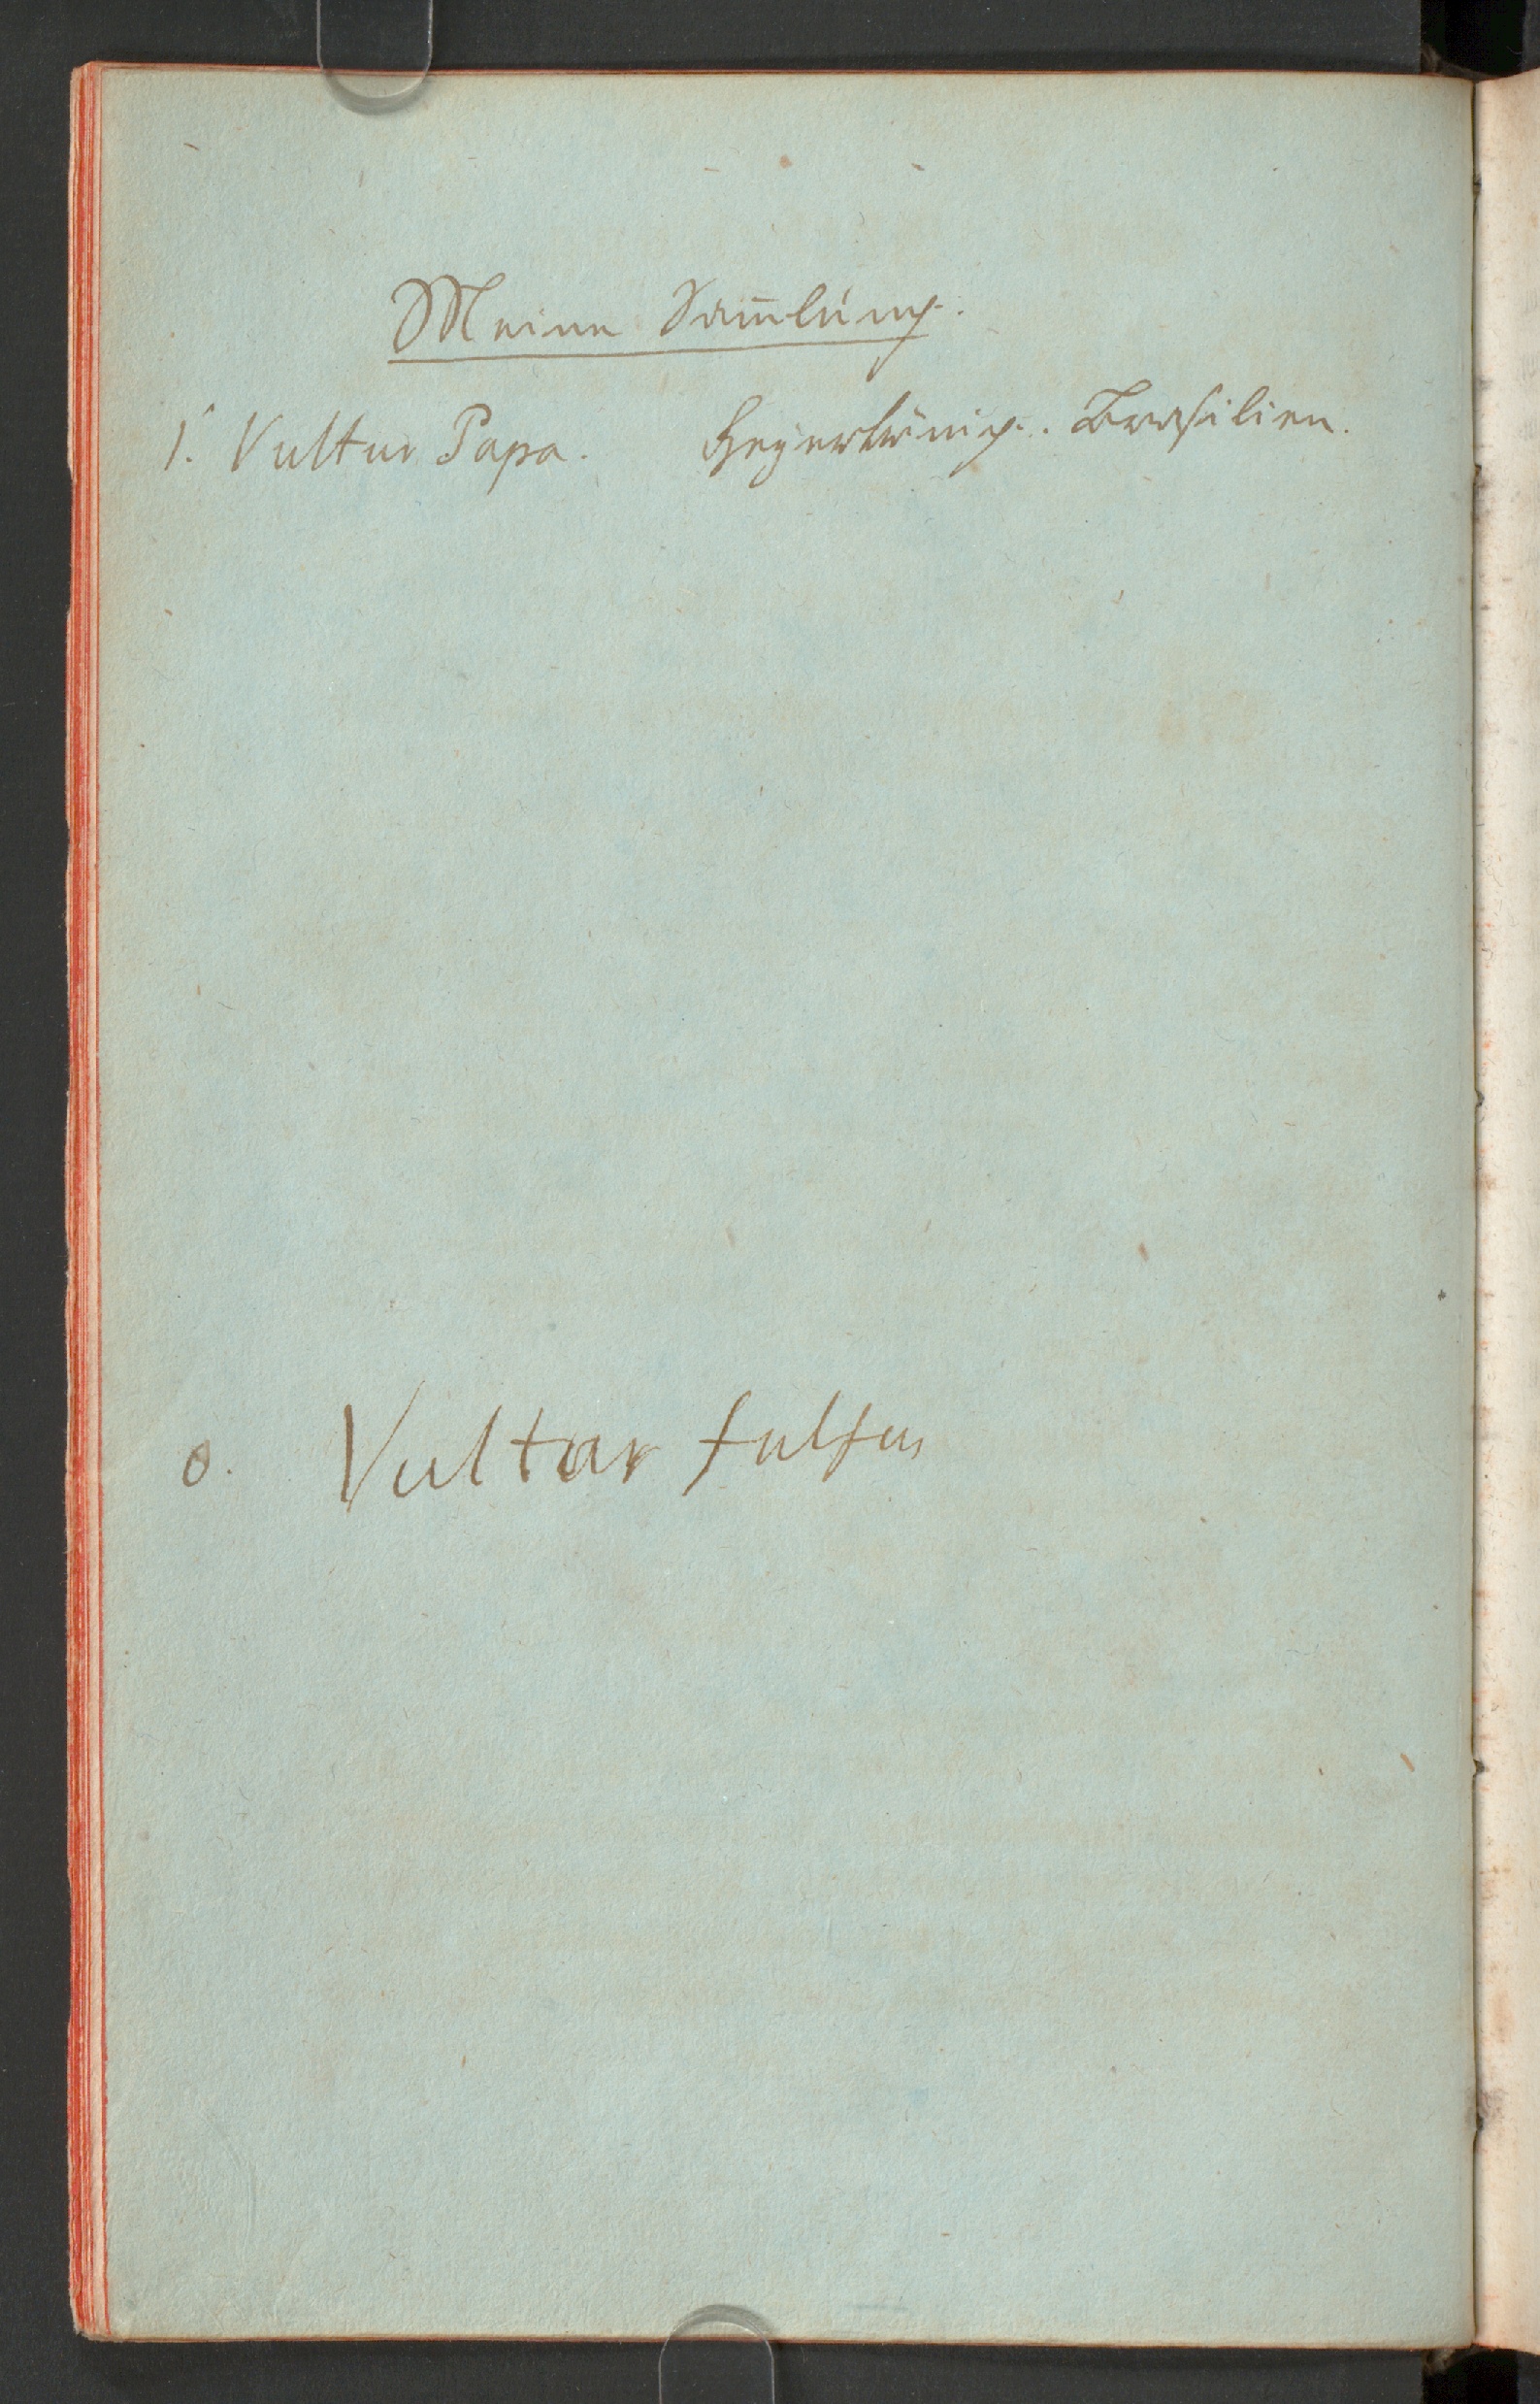 Meine Sam̅lung.
1. Vultur Papa. Geyerkönig. Brasilien.
0. Vultur fulfus